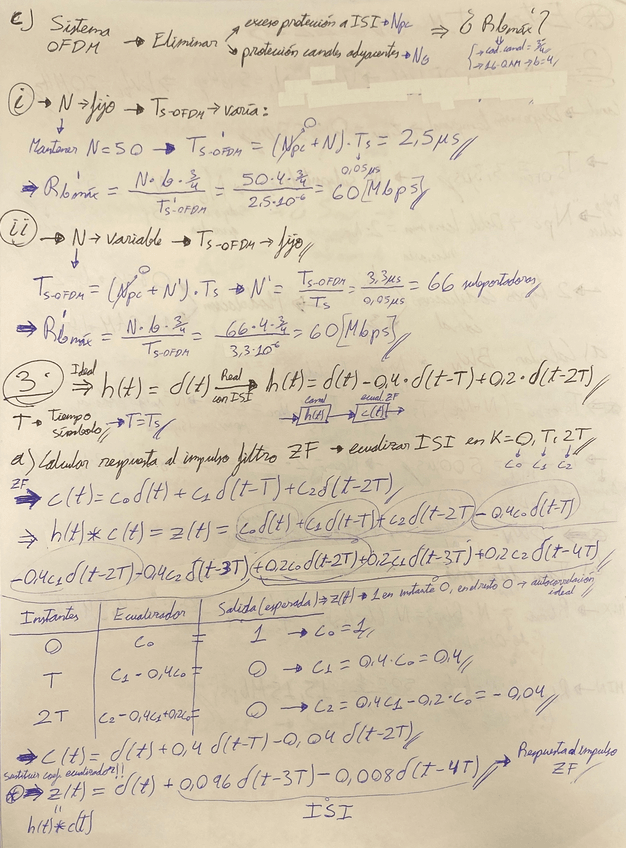 c) Sistema OFDM → Eliminar → exceso protección a ISI → Npc ⇒ ¿Rb máx?
→ protección canales adyacentes → NG
{→ cod. canal = 3/4
→ 16-QAM → b=4
i → N → fijo → Ts-OFDM → varía:
Mantener N=50 → T's-OFDM = (Npc + N)·Ts = 2,5μs
0 0,05μs
⇒ Rb'máx = N·b·3/4 / T's-OFDM = 50·4·3/4 / 2,5·10^-6 = 60 [Mbps]
ii → N → variable → Ts-OFDM → fijo
Ts-OFDM = (Npc + N')·Ts → N' = Ts-OFDM / Ts = 3,3μs / 0,05μs = 66 subportadoras
⇒ Rb'máx = N·b·3/4 / Ts-OFDM = 66·4·3/4 / 3,3·10^-6 = 60 [Mbps]
3. Ideal ⇒ h(t) = δ(t) Real con ISI → h(t) = δ(t) - 0,4·δ(t-T) + 0,2·δ(t-2T)
T → Tiempo símbolo → T=Ts canal → h(t) → ecual. ZF c(t) →
a) Calcular respuesta al impulso filtro ZF → ecualizar ISI en K=0, T, 2T
C0 C1 C2
ZF ⇒ c(t) = c0 δ(t) + c1 δ(t-T) + c2 δ(t-2T)
⇒ h(t) * c(t) = z(t) = c0 δ(t) + c1 δ(t-T) + c2 δ(t-2T) - 0,4c0 δ(t-T)
- 0,4c1 δ(t-2T) - 0,4c2 δ(t-3T) + 0,2c0 δ(t-2T) + 0,2c1 δ(t-3T) + 0,2c2 δ(t-4T)
Instantes Ecualizador Salida (esperada) ⇒ z(t) → 1 en instante 0, en el resto 0 → autocorrelación ideal
0 c0 = 1 → c0 = 1
T c1 - 0,4c0 = 0 → c1 = 0,4·c0 = 0,4
2T c2 - 0,4c1 + 0,2c0 = 0 → c2 = 0,4c1 - 0,2·c0 = -0,04
⇒ c(t) = δ(t) + 0,4 δ(t-T) - 0,04 δ(t-2T)
sustituir coef. ecualizador!! → Respuesta al impulso ZF
⇒ z(t) = δ(t) + 0,096 δ(t-3T) - 0,008 δ(t-4T)
h(t) * c(t) ISI